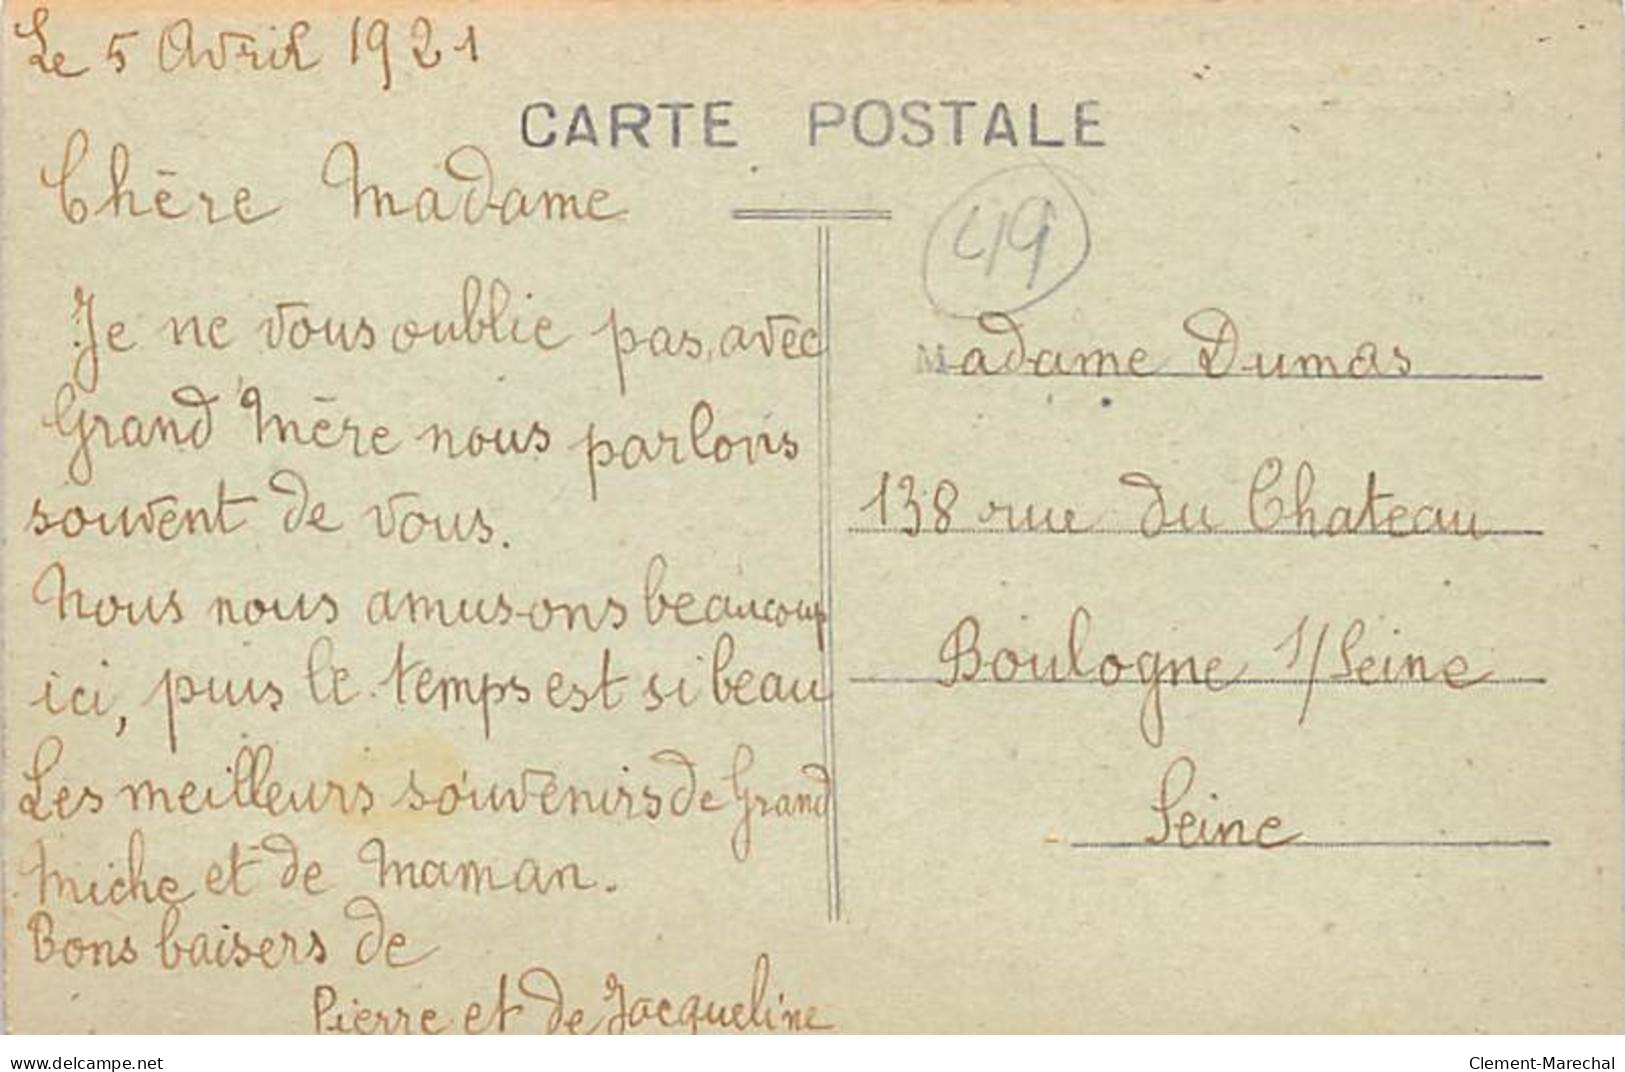 Le 5 Avril 1921
CARTE POSTALE
Chère Madame
49
Je ne vous oublie pas, avec
Grand'Mère nous parlons
souvent de vous.
Nous nous amusons beaucoup
ici, puis le temps est si beau
Les meilleurs souvenirs de Grand
Miche et de Maman.
Bons baisers de
Pierre et de Jacqueline
Madame Dumas
138 rue du Chateau
Boulogne s/Seine
Seine
delcampe.net
Clement-Marechal